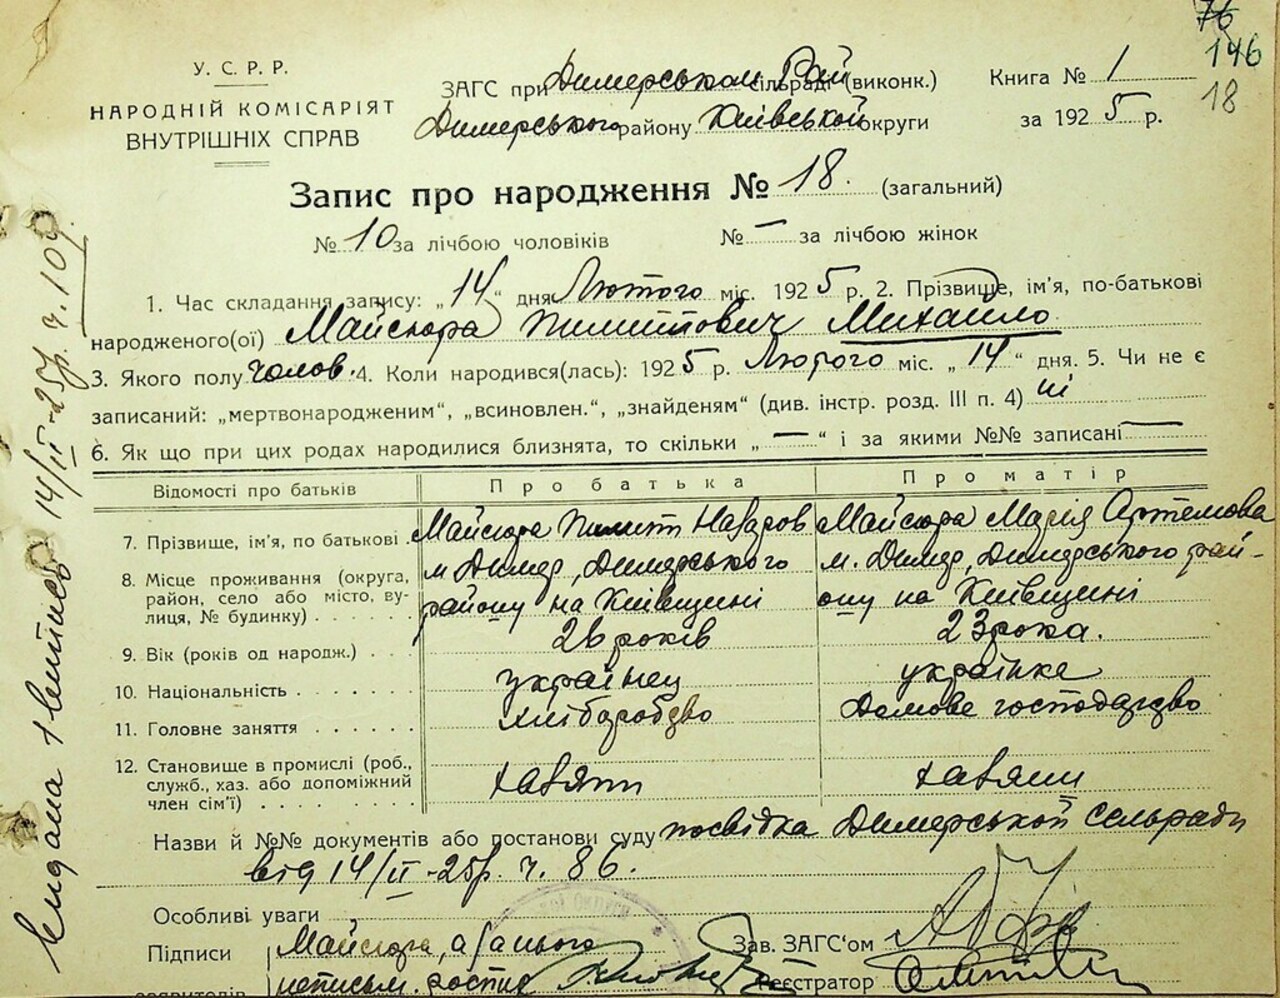 76
146
18
У. С. Р. Р.
НАРОДНІЙ КОМІСАРІЯТ
ВНУТРІШНІХ СПРАВ
ЗАГС при Димерськом Рай сільраді (виконк.)
Димерського району Київської округи
Книга № 1
за 1925 р.
Запис про народження № 18. (загальний)
№ 10 за лічбою чоловіків № — за лічбою жінок
1. Час складання запису: „14“ дня Лютого міс. 1925 р. 2. Прізвище, ім'я, по-батькові
народженого(ої) Майсюра Пилиппович Михайло
3. Якого полу чолов. 4. Коли народився(лась): 1925 р. Лютого міс. „14“ дня. 5. Чи не є
записаний: „мертвонародженим“, „всиновлен.“, „знайденям“ (див. інстр. розд. III п. 4) ні
6. Як що при цих родах народилися близнята, то скільки „—“ і за якими №№ записані —
Відомості про батьків Про батька Про матір
7. Прізвище, ім'я, по батькові . Майсюра Пилип Назаров Майсюра Марія Артемова
8. Місце проживання (округа, район, село або місто, вулиця, № будинку) . . . . . м Димер, Димерського району на Київщині м. Димер, Димерського району на Київщині
9. Вік (років од народж.) . . . 26 років 23 рока.
10. Національність . . . . . . українец українке
11. Головне заняття . . . . . . хліборобдво Домове господардво
12. Становище в промислі (роб., служб., хаз. або допоміжний член сім'ї) . . . . . . . . хазяин хазяини
Назви й №№ документів або постанови суду посвідка Димерської сельради
від 14/II-25р. ч. 86.
Особливі уваги
Підписи Майсюра, а за нього Зав. ЗАГС'ом
заявителів неписьм. роспис Реєстратор
видана 1 виписъ 14/II-25р. ч. 109.